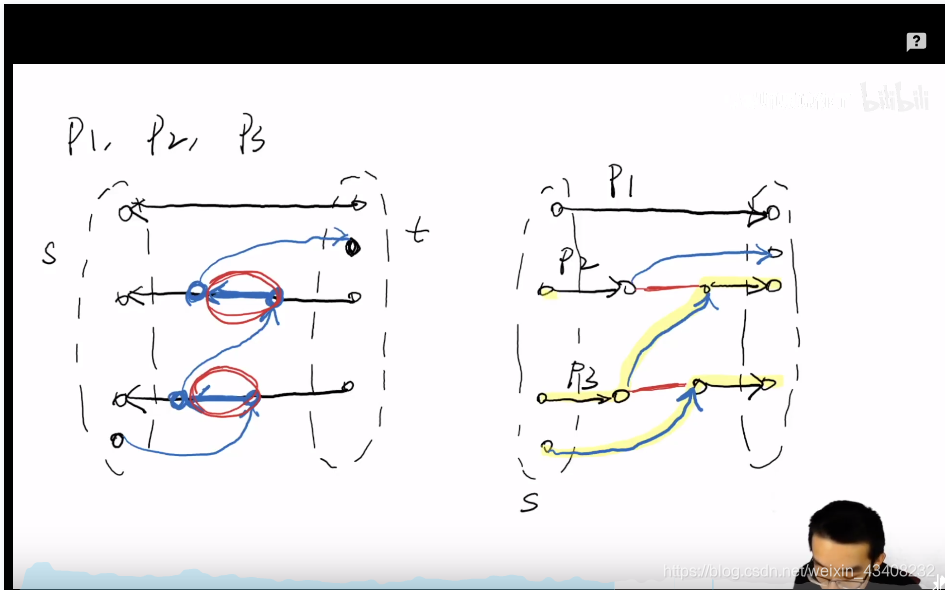 ?
bilibili
P1, P2, P3
S
t
P1
P2
P3
S
https://blog.csdn.net/weixin_43408232